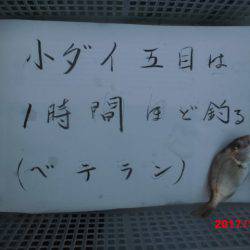 小ダイ五目は
1時間ほど釣る
(ベテラン)